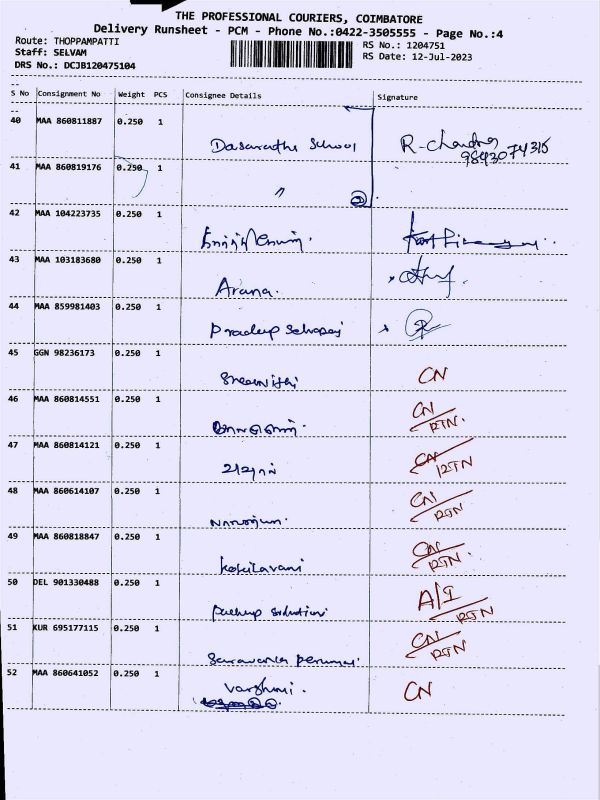 THE PROFESSIONAL COURIERS, COIMBATORE
Delivery Runsheet - PCM - Phone No.:0422-3505555 - Page No.:4
Route: THOPPAMPATTI
Staff: SELVAM
DRS No.: DCJB120475104
RS No.: 1204751
RS Date: 12-Jul-2023
S No Consignment No Weight PCS Consignee Details Signature
40 MAA 860811887 0.250 1
Dasarathi School R-Chandra
9843074315
41 MAA 860819176 0.250 1
"
42 MAA 104223735 0.250 1
43 MAA 103183680 0.250 1
Arana.
44 MAA 859981403 0.250 1
Pradeep Selvaraj
45 GGN 98236173 0.250 1
Sreenithi CN
46 MAA 860814551 0.250 1
CN/RTN.
47 MAA 860814121 0.250 1
CN/RTN
48 MAA 860614107 0.250 1
CN/RTN
49 MAA 860818847 0.250 1
Kokilavani CN/RTN.
50 DEL 901330488 0.250 1
solution RTN
51 KUR 695177115 0.250 1
Saravana Perumal CN/RTN
52 MAA 860641052 0.250 1
Varshini. CN